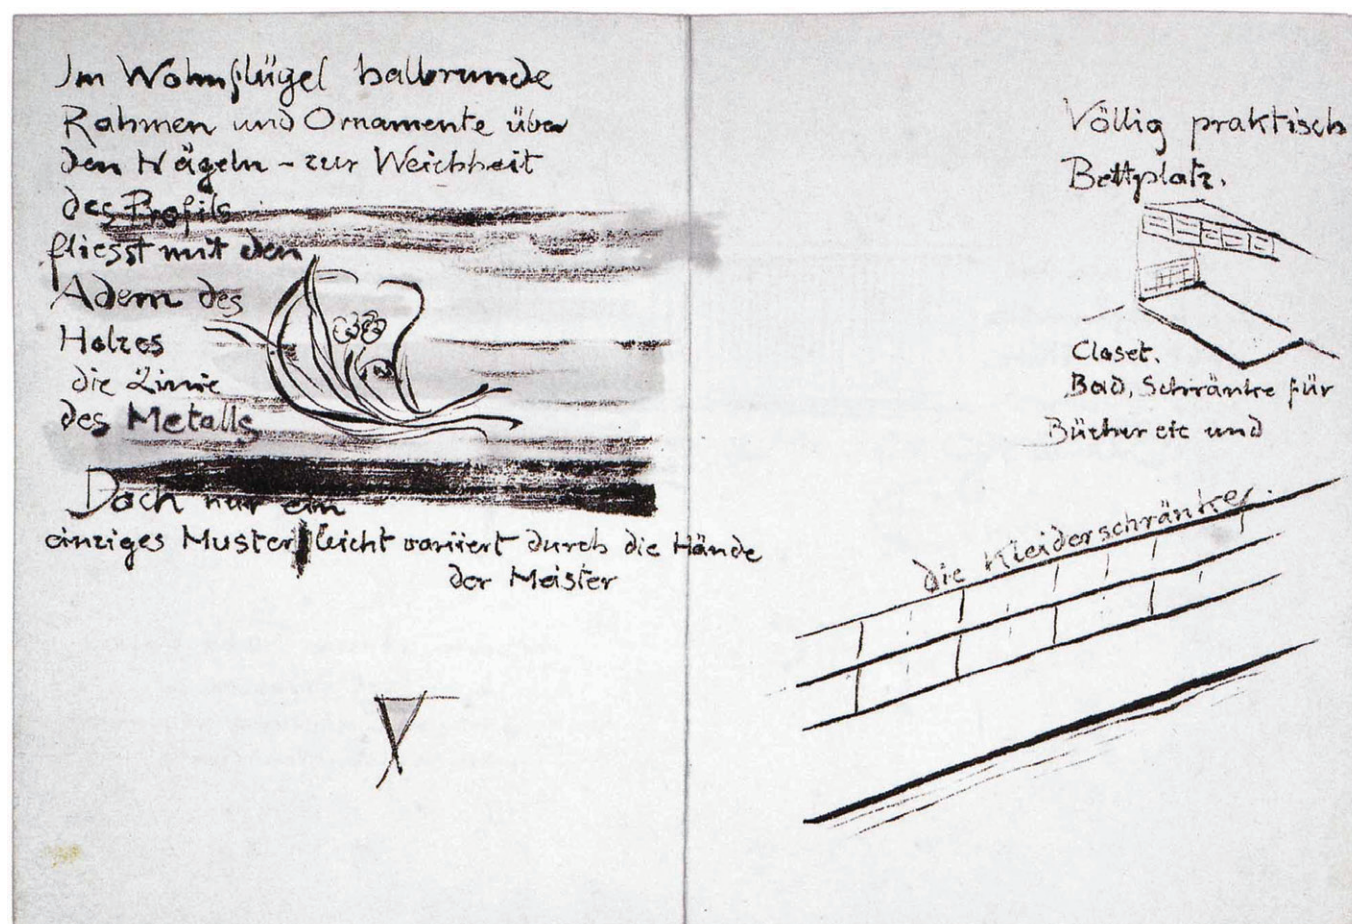 Im Wohnflügel halbrunde
Rahmen und Ornamente über
den Nägeln – zur Weichheit
des Profils
fliesst mit den
Adern des
Holzes
die Linie
des Metalls
Doch nur ein
einziges Muster leicht variiert durch die Hände
der Meister
Völlig praktisch
Bettplatz.
Closet.
Bad, Schränke für
Bücher etc und
die Kleiderschränke.